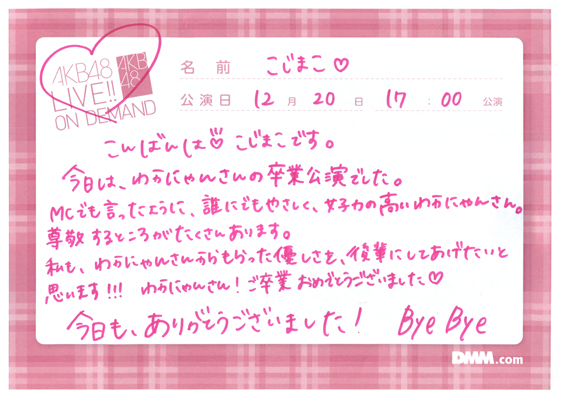 AKB48
LIVE!!
ON DEMAND
AKB
48
名前 こじまこ♡
公演日 12月20日 17:00公演
こんばんは♡ こじまこです。
今日は、わかにゃんさんの卒業公演でした。
MCでも言ったように、誰にでもやさしく、女子力の高いわかにゃんさん。
尊敬するところがたくさんあります。
私も、わかにゃんさんからもらった優しさを、後輩にしてあげたいと
思います!!! わかにゃんさん!ご卒業おめでとうございました♡
今日も、ありがとうございました! Bye Bye
DMM.com